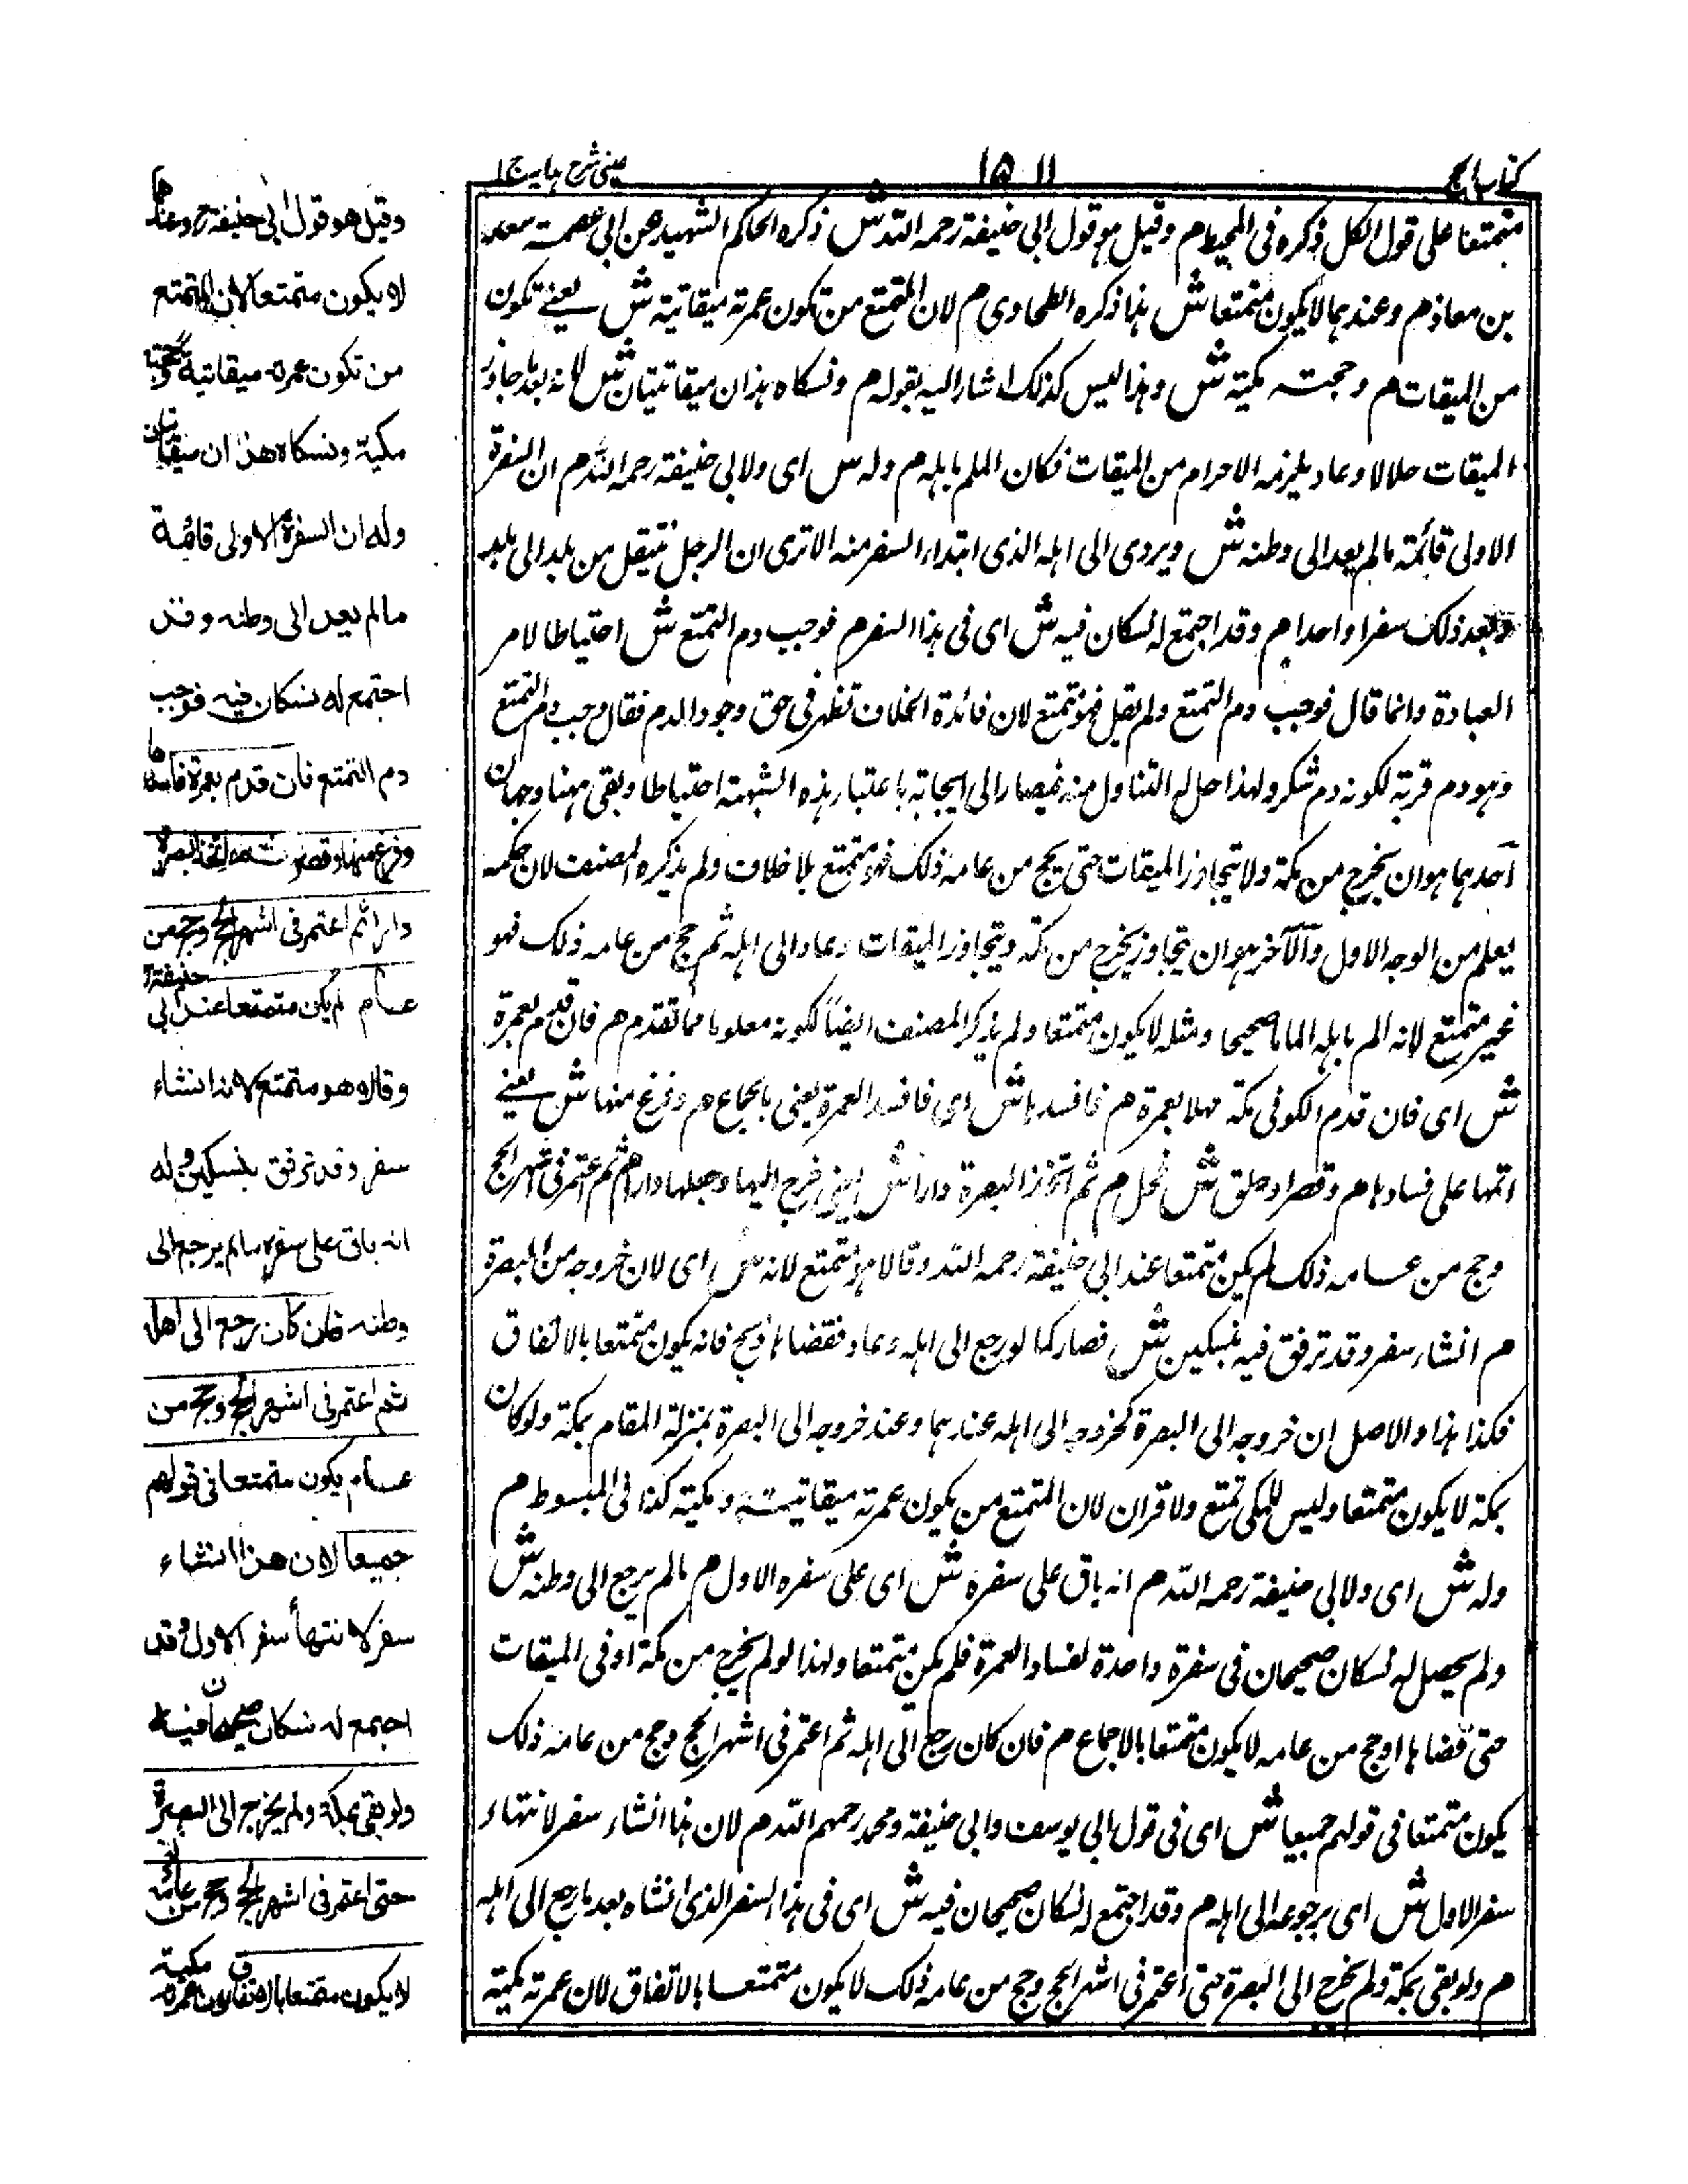 كتاب الحج
١٥١١
عينى شرح هدايه ج ١
متمتعا على قول الكل ذكره فى المحيط م وقيل هو قول ابى حنيفة رحمه الله ش ذكره الحاكم الشهيد عن ابى عصمة سعد
بن معاذ م وعندهما لا يكون متمتعا ش هذا ذكره الطحاوى م لان المتمتع من تكون عمرته ميقاتية ش يعنے تكون
من الميقات م وحجته مكية ش وهذا ليس كذلك اشار اليه بقوله م ونسكاه هذان ميقاتيتان ش لانه بعد ما جاوز
الميقات حلالا وعاد يلزمه الاحرام من الميقات فكان الملم باهله م وله س اى ولابى حنيفة رحمه الله م ان السفرة
الاولى قائمة مالم يعد الى وطنه ش ويروى الى اهله الذى ابتداء السفر منه الا ترى ان الرجل ينتقل من بلد الى بلد
ويعد ذلك سفرا واحدا م وقد اجتمع له نسكان فيه ش اى فى هذا السفر م فوجب دم التمتع ش احتياطا لامر
العبادة وانما قال فوجب دم التمتع ولم يقل فهو متمتع لان فائدة الخلاف تظهر فى حق وجود الدم فقال وجب دم التمتع
وهو دم قربة لكونه دم شكر ولهذا حل له التناول منه فيصار الى ايجابه باعتبار هذه الشبهة احتياطا وبقى ههنا وجهان
احدهما هو ان يخرج من مكة ولا يتجاوز الميقات حتى يحج من عامه ذلك فهو متمتع بلا خلاف ولم يذكره المصنف لان حكمه
يعلم من الوجه الاول والآخر هو ان يتجاوز يخرج من مكة ويتجاوز الميقات وعاد الى اهله ثم حج من عامه ذلك فهو
غير متمتع لانه الم باهله الماما صحيحا ومثله لا يكون متمتعا ولم يذكر المصنف ايضاً لكونه معلوما مما تقدم م فان قدم بعمرة
ش اى فان قدم الكوفى مكة مهلا بعمرة م فافسدها ش اى فافسد العمرة يعنى بالجماع م وفرغ منها ش يعنے
اتمها على فسادها م وقصر اوحلق ش فحل م ثم اتخذ البصرة دارا ش يعنى خرج اليها وجعلها دارا م ثم اعتمر فى اشهر الحج
وحج من عامه ذلك لم يكن متمتعا عند ابى حنيفة رحمه الله وقالا هو متمتع لانه ش اى لان خروجه من البصرة
م انشاء سفر وقد ترفق فيه بنسكين ش فصار كما لو رجع الى اهله وعاد فقضاها وحج فانه يكون متمتعا بالاتفاق
فكذا هذا والاصل ان خروجه الى البصرة كخروجه الى اهله عندهما وعند خروجه الى البصرة بمنزلة المقام بمكة ولو كان
بمكة لا يكون متمتعا وليس للمكى تمتع ولا قران لان المتمتع من يكون عمرته ميقاتيته ومكية كذا فى المبسوط م
وله ش اى ولابى حنيفة رحمه الله م انه باق على سفره ش اى على سفره الاول م مالم يرجع الى وطنه ش
ولم يحصل له نسكان صحيحان فى سفرة واحدة لفساد العمرة فلم يكن متمتعا ولهذا لو لم يخرج من مكة او فى الميقات
حتى قضاها اوحج من عامه لا يكون متمتعا بالاجماع م فان كان رجع الى اهله ثم اعتمر فى اشهر الحج وحج من عامه ذلك
يكون متمتعا فى قولهم جميعا ش اى فى قول ابى يوسف وابى حنيفة ومحمد رحمهم الله م لان هذا انشاء سفر لانتهاء
سفر الاول ش اى برجوعه الى اهله م وقد اجتمع له نسكان صحيحان فيه ش اى فى هذا السفر الذى انشاه بعد ما رجع الى اهله
م ولو بقى بمكة ولم يخرج الى البصرة حتى اعتمر فى اشهر الحج وحج من عامه ذلك لا يكون متمتعا بالاتفاق لان عمرته مكية
وقيل هو قول ابى حنيفة رح وعندهما
لا يكون متمتعا لان المتمتع
من تكون عمرته ميقاتية وحجته
مكية ونسكاه هذان ميقاتيان
وله ان السفرة الاولى قائمة
مالم يعد الى وطنه وقد
اجتمع له نسكان فيه فوجب
دم التمتع فان قدم بعمرة فافسدها
وفرغ منها وقصر ثم اتخذ البصرة
دارا ثم اعتمر فى اشهر الحج وحج من
عامه لم يكن متمتعا عند ابى حنيفة رح
وقالا هو متمتع لانه انشاء
سفر وقد ترفق بنسكين وله
انه باق على سفره مالم يرجع الى
وطنه فان كان رجع الى اهله
ثم اعتمر فى اشهر الحج وحج من
عامه يكون متمتعا فى قولهم
جميعا لان هذا انشاء
سفر لانتهاء سفر الاول وقد
اجتمع له نسكان صحيحان فيه
ولو بقى بمكة ولم يخرج الى البصرة
حتى اعتمر فى اشهر الحج وحج من عامه
لا يكون متمتعا بالاتفاق لان عمرته مكية